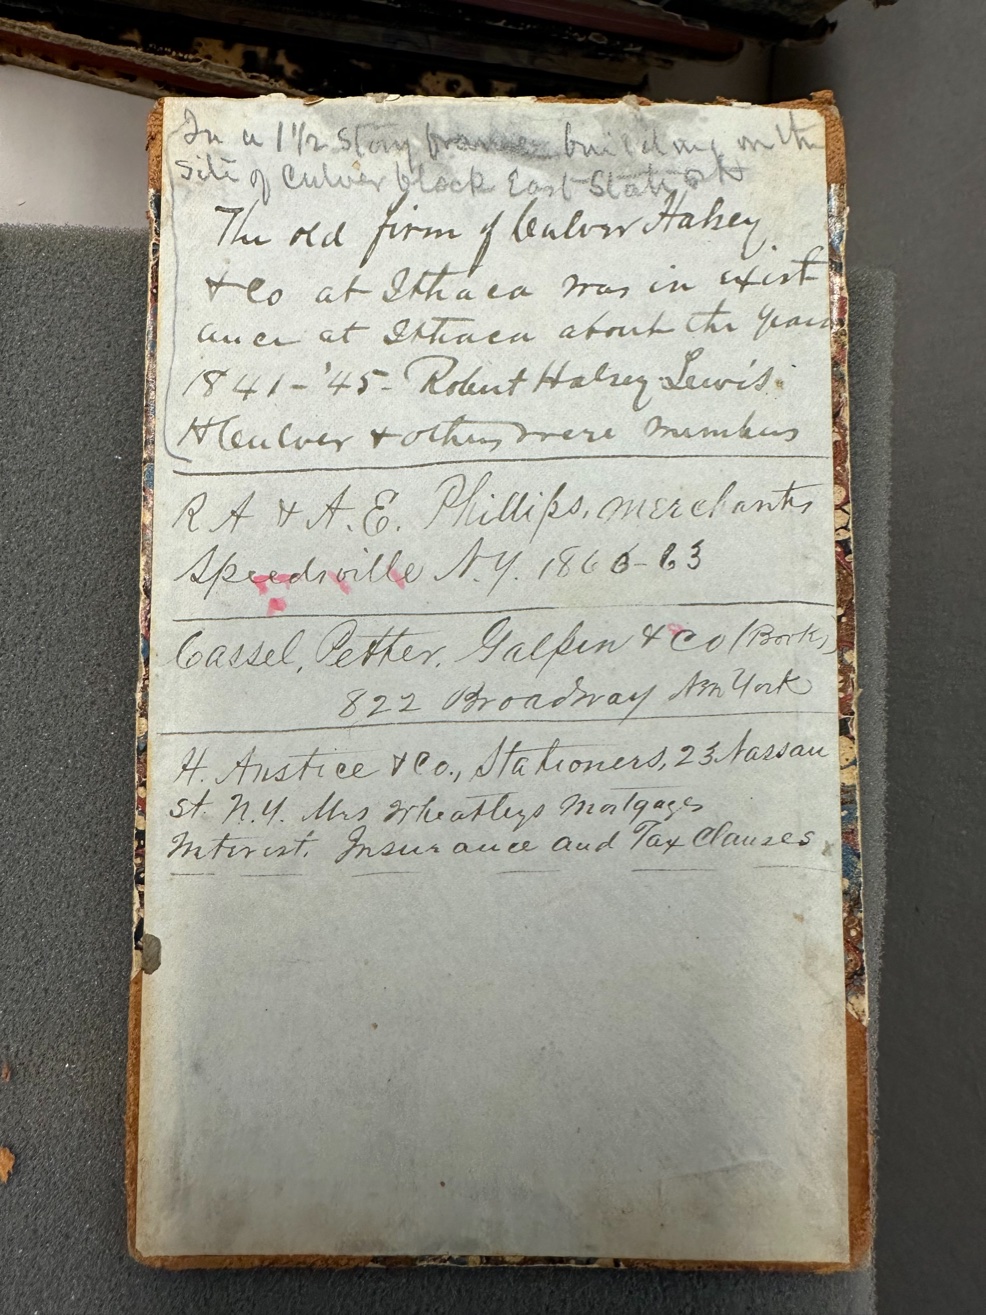 In a 1 1/2 story frame building on the
site of Culver block East State St
The old firm of Culver Halsey
& Co at Ithaca was in exist
ance at Ithaca about the years
1841-'45- Robert Halsey Lewis
H Culver & others were members
R A & A. E. Phillips, merchants
Speedsville N.Y. 1863-63
Cassel, Petter, Galpin & Co (Books,)
822 Broadway New York
H. Anstice & Co., Stationers, 23 Nassau
st. N.Y. Mrs Wheatleys Mortgages
Interest. Insurance and Tax Clauses